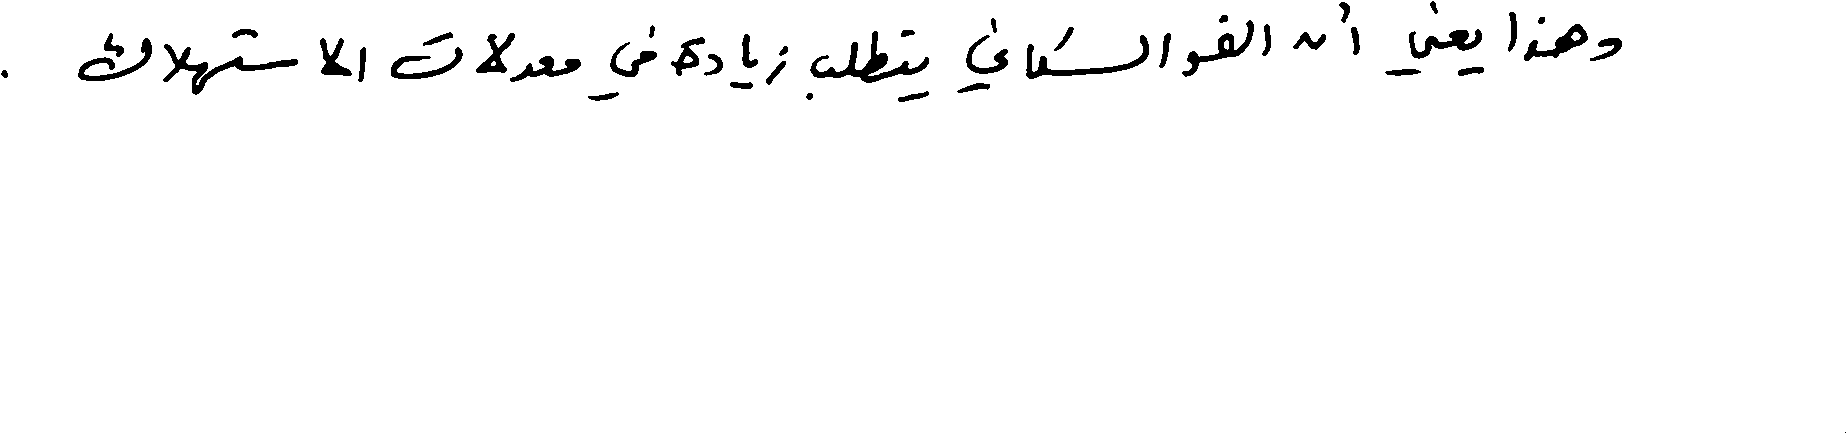 وهذا يعني أن النمو السكاني يتطلب زيادة في معدلات الاستهلاك .